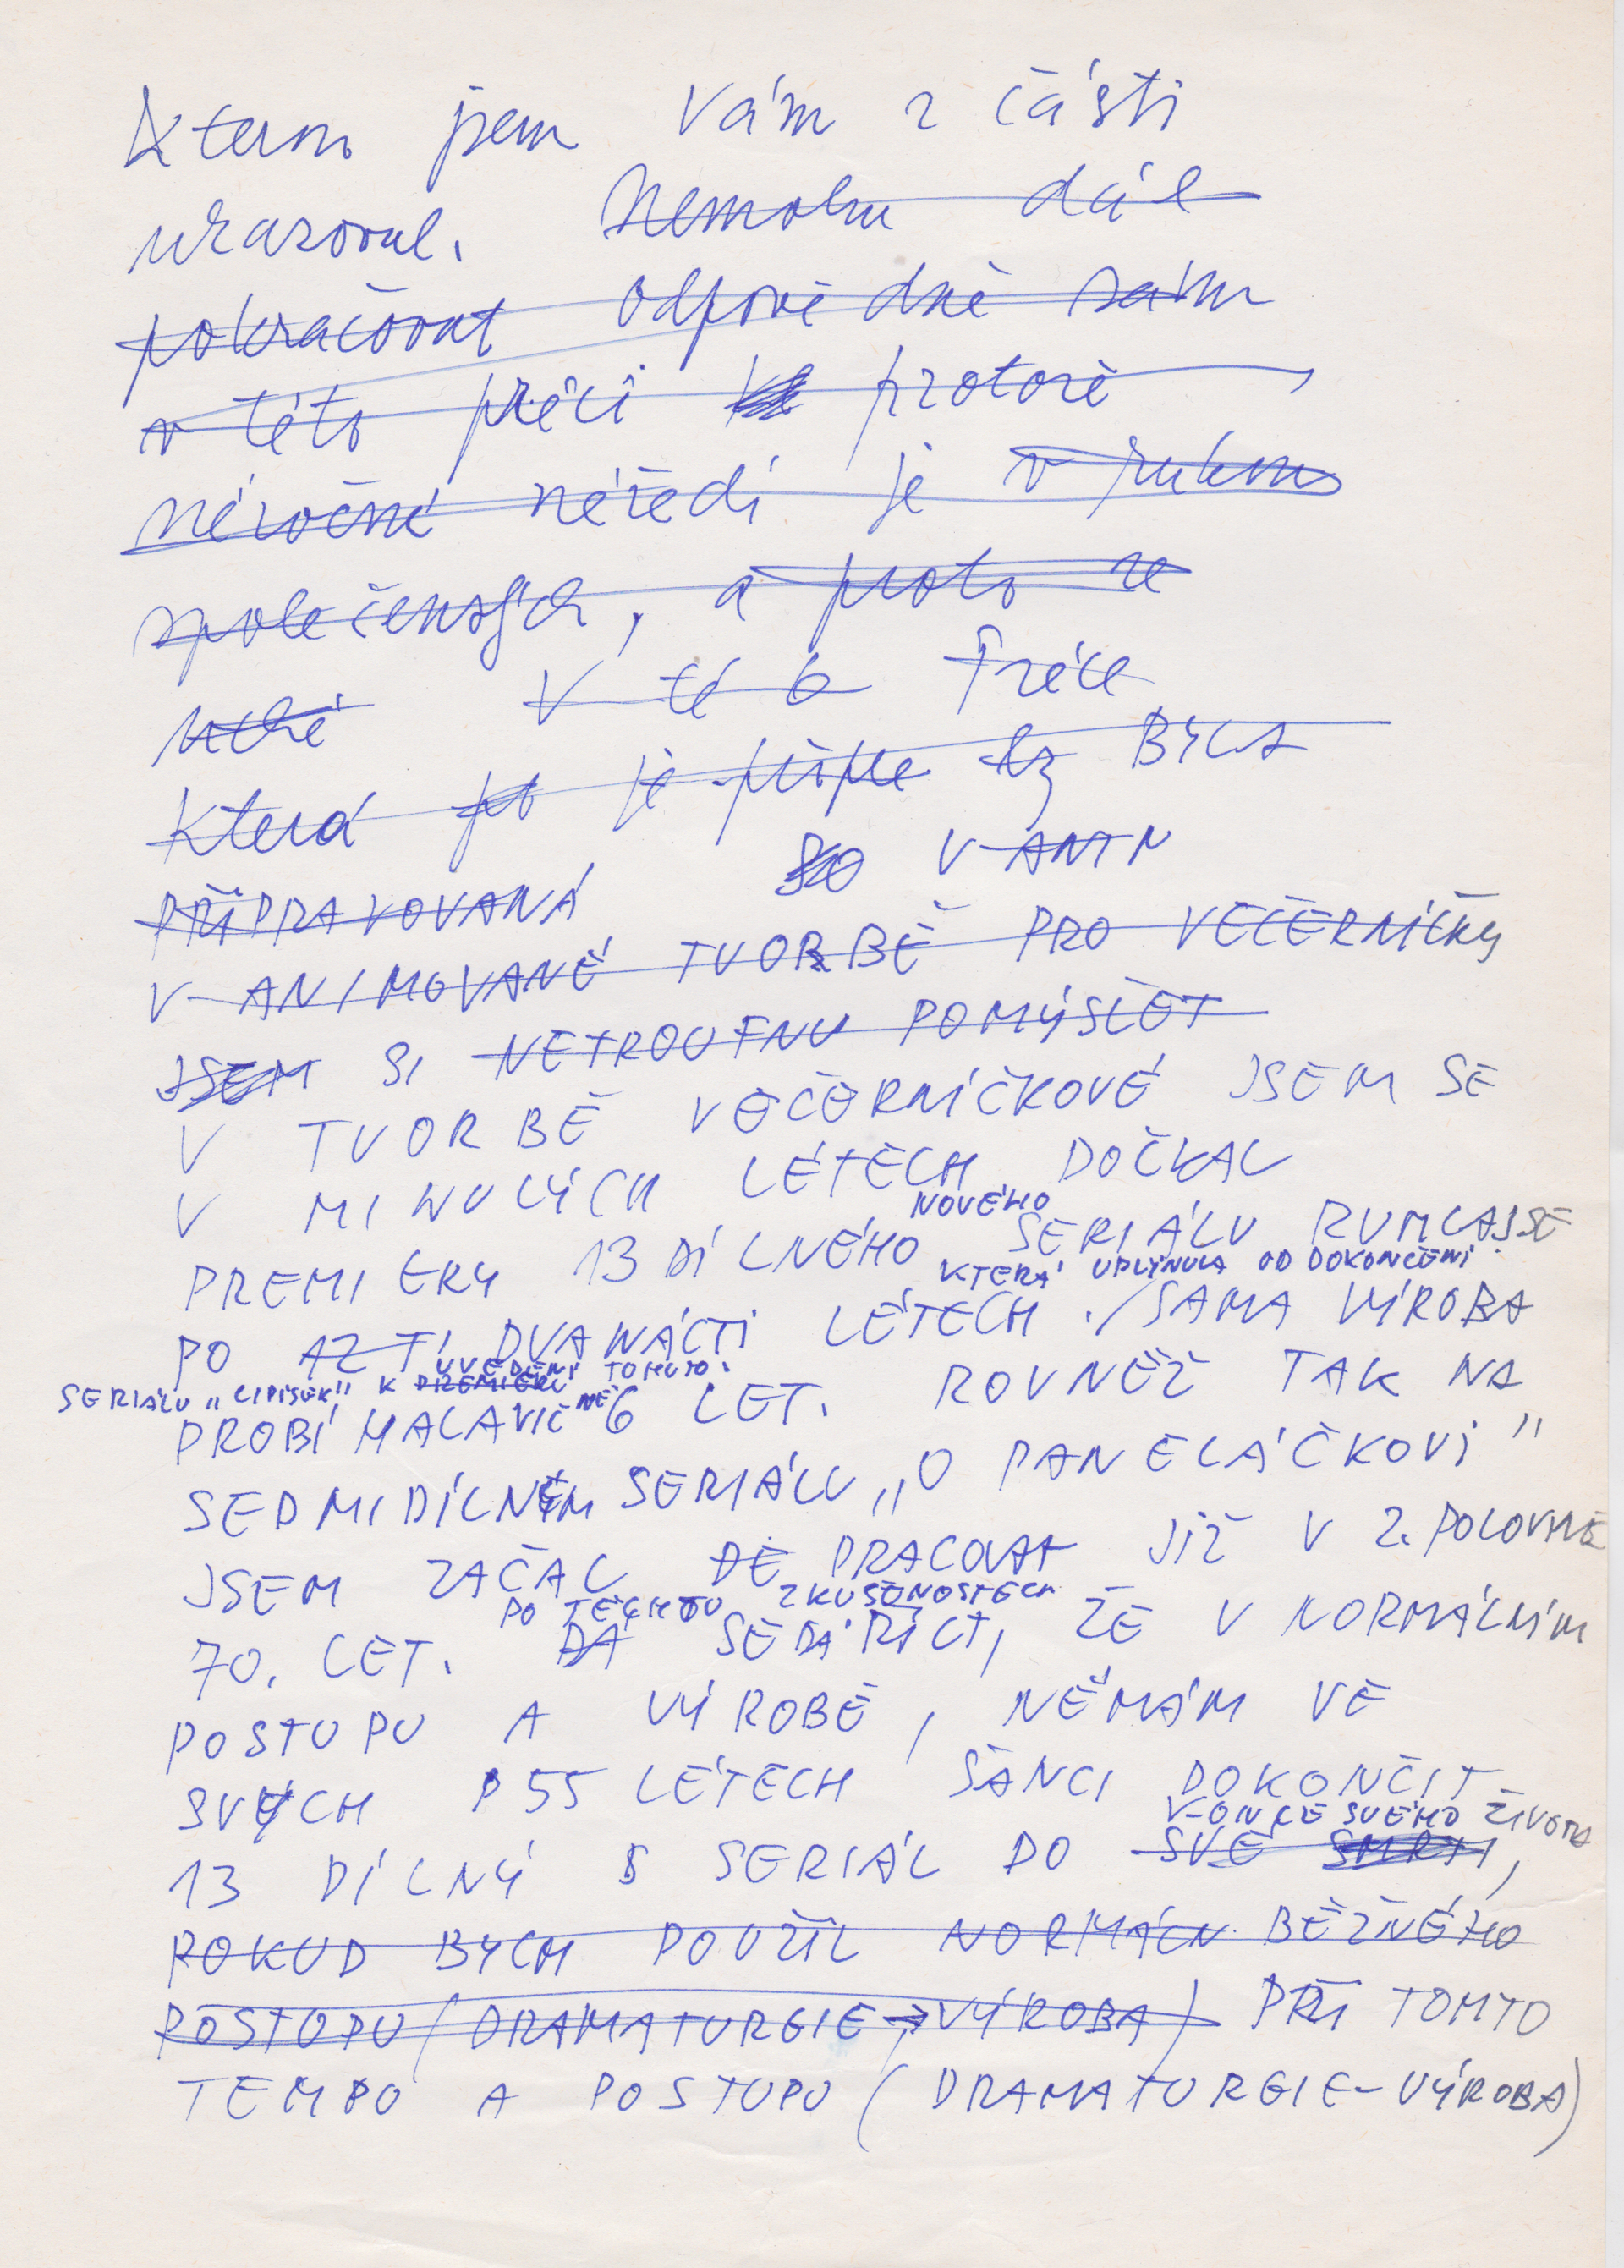 kterou jsem Vám z části
ukazoval. Nemohu dál
pokračovat odpovědně sám
v této práci protože
náročné nářadí je v rukou
společenských, a proto se
V této práce
která po je příple by BYLA
PŘIPRAVOVANÁ SO V ANIN
V ANIMOVANÉ TVORBĚ PRO VEČERNÍČKY
JSEM SI NETROUFNU POMÝŠLET
V TVORBĚ VEČERNÍČKOVÉ JSEM SE
V MINULÝCH LÉTECH DOČKAL
NOVÉHO
PREMIERY 13 DÍLNÉHO SERIÁLU RUMCAJSE
KTERÁ UPLYNULA OD DOKONČENÍ
PO AZ TI DVANÁCTI LÉTECH. SAMA VÝROBA
UVEDENÍ TOMUTO.
SERIÁLU "CIPÍSEK" K PREMIÉŘE
PROBÍHALA VÍC NĚ 6 LET. ROVNĚŽ TAK NA
SEDMIDÍLNÉM SERIÁLU „O PANELÁČKOVI"
JSEM ZAČAL DĚ PRACOVAT JIŽ V 2. POLOVINĚ
PO TĚCHTO ZKUŠENOSTECH
70. LET. DÁ SE DÁ ŘÍCT, ŽE V NORMÁLNÍM
POSTUPU A VÝROBĚ, NEMÁM VE
SVÝCH 55 LÉTECH ŠANCI DOKONČIT
V-ONCE SVÉHO ŽIVOTA
13 DÍLNÝ S SERIÁL DO SVÉ SMRTI,
POKUD BYCH POUŽIL NORMÁLN BĚŽNÉHO
POSTUPU (DRAMATURGIE → VÝROBA) PŘI TOMTO
TEMPO A POSTUPU (DRAMATURGIE – VÝROBA)